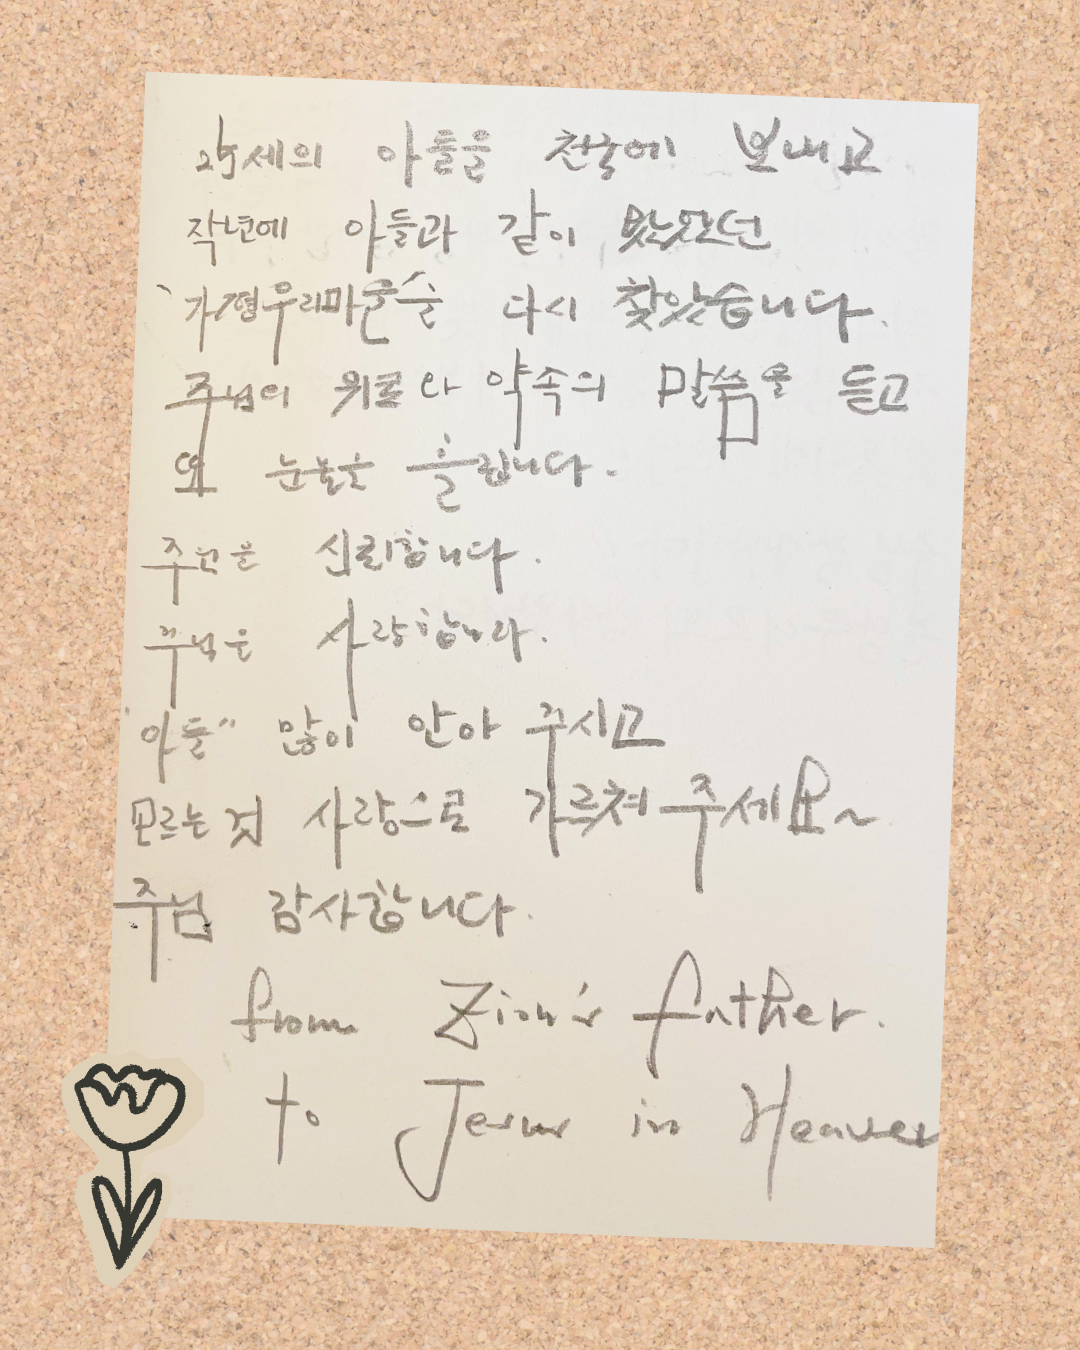 25세의 아들을 천국에 보내고
작년에 아들과 같이 왔었던
다시 찾았습니다.
주님의 위로와 약속의 말씀을 듣고
또 눈물을 흘립니다.
주님을 신뢰합니다.
주님을 사랑합니다.
"아들" 많이 안아 주시고
모르는것 사랑으로 가르쳐주세요~
주님 감사합니다.
from Zion's father.
to Jesus in Heaven